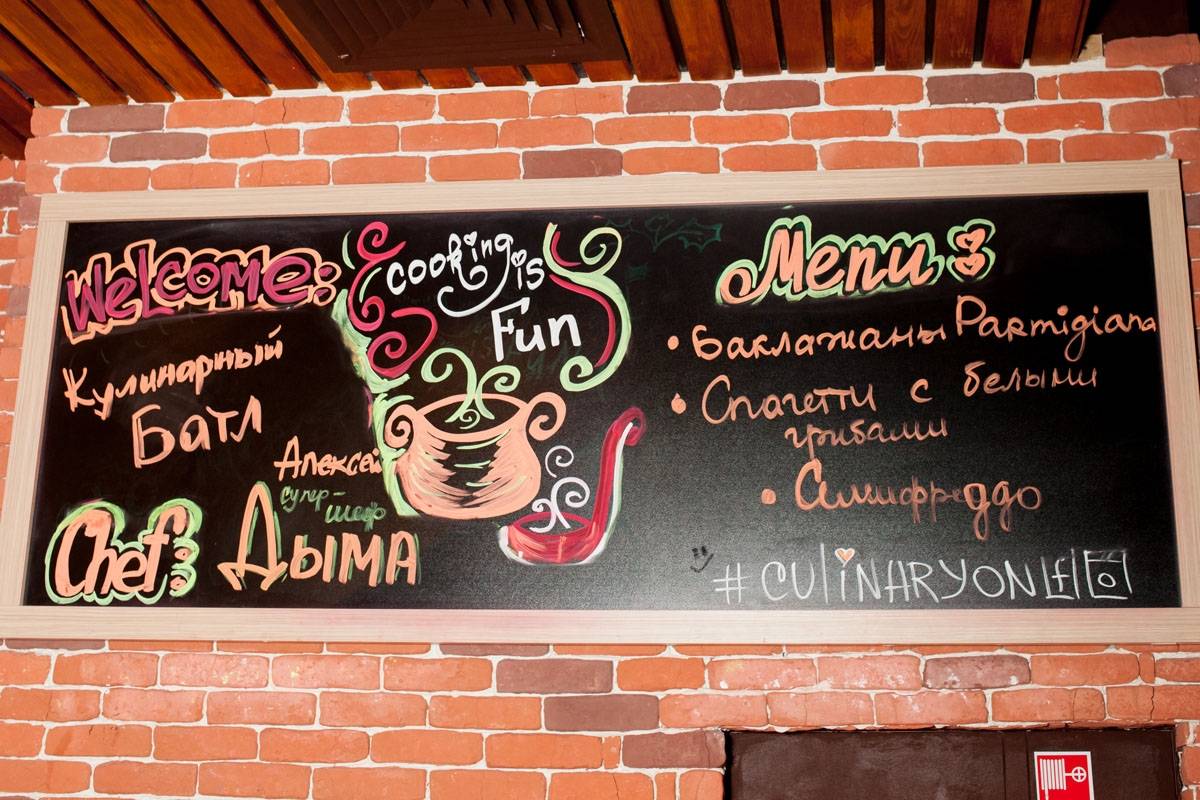 Welcome:
Кулинарный
Батл
Chef:
Алексей
супер-
шеф
Дыма
cooking is
Fun
Menu:
• Баклажаны Parmigiana
• Спагетти с белыми
грибами
• Симифреддо
#CULINARYON